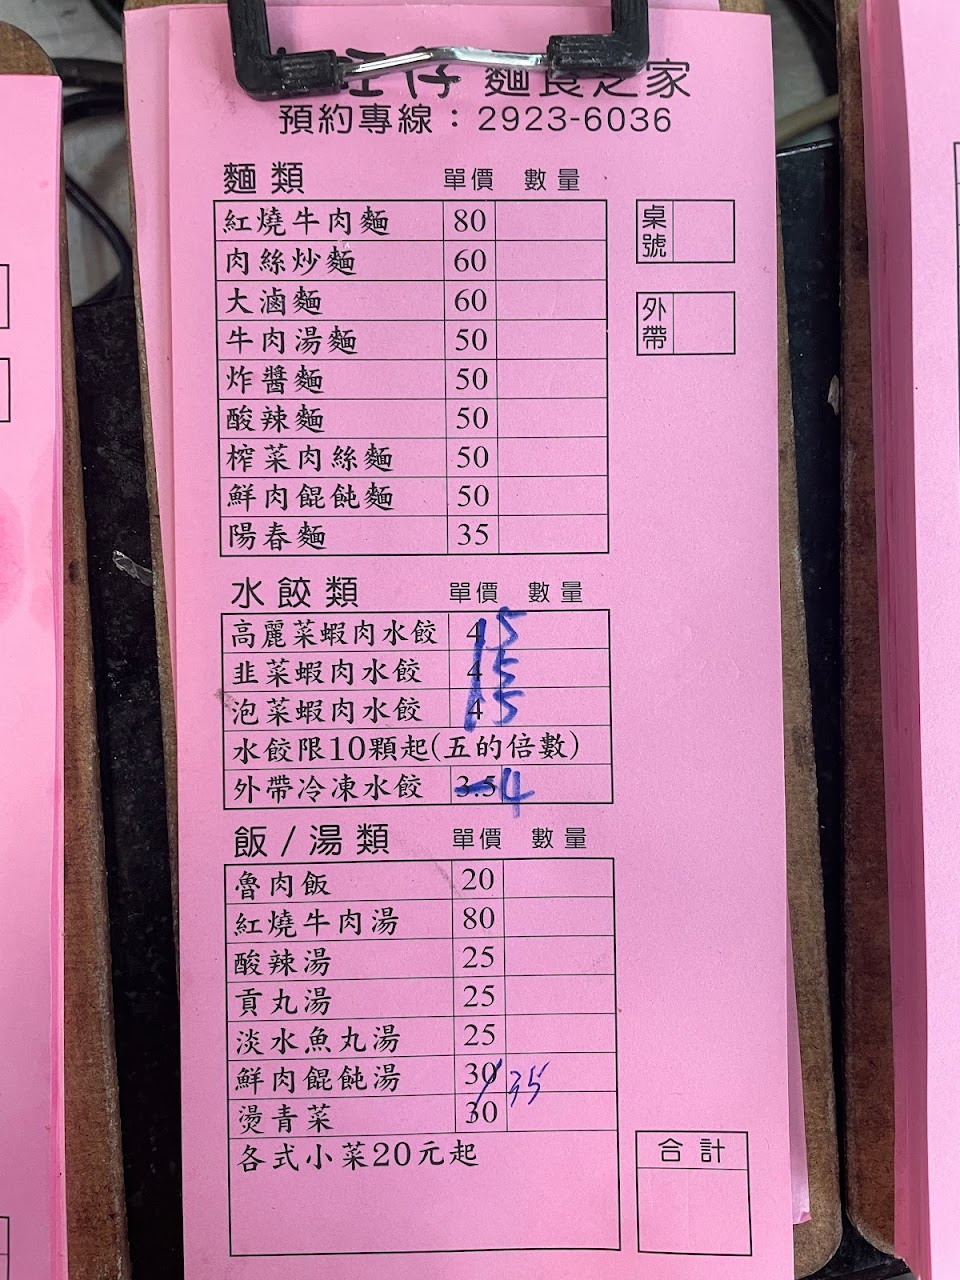 旺仔 麵食之家
預約專線：2923-6036
麵類 單價 數量
紅燒牛肉麵 80
肉絲炒麵 60
大滷麵 60
牛肉湯麵 50
炸醬麵 50
酸辣麵 50
榨菜肉絲麵 50
鮮肉餛飩麵 50
陽春麵 35
桌號
外帶
水餃類 單價 數量
高麗菜蝦肉水餃 4 5
韭菜蝦肉水餃 4 5
泡菜蝦肉水餃 4 5
水餃限10顆起(五的倍數)
外帶冷凍水餃 3.5 4
飯/湯類 單價 數量
魯肉飯 20
紅燒牛肉湯 80
酸辣湯 25
貢丸湯 25
淡水魚丸湯 25
鮮肉餛飩湯 30 35
燙青菜 30
各式小菜20元起
合計